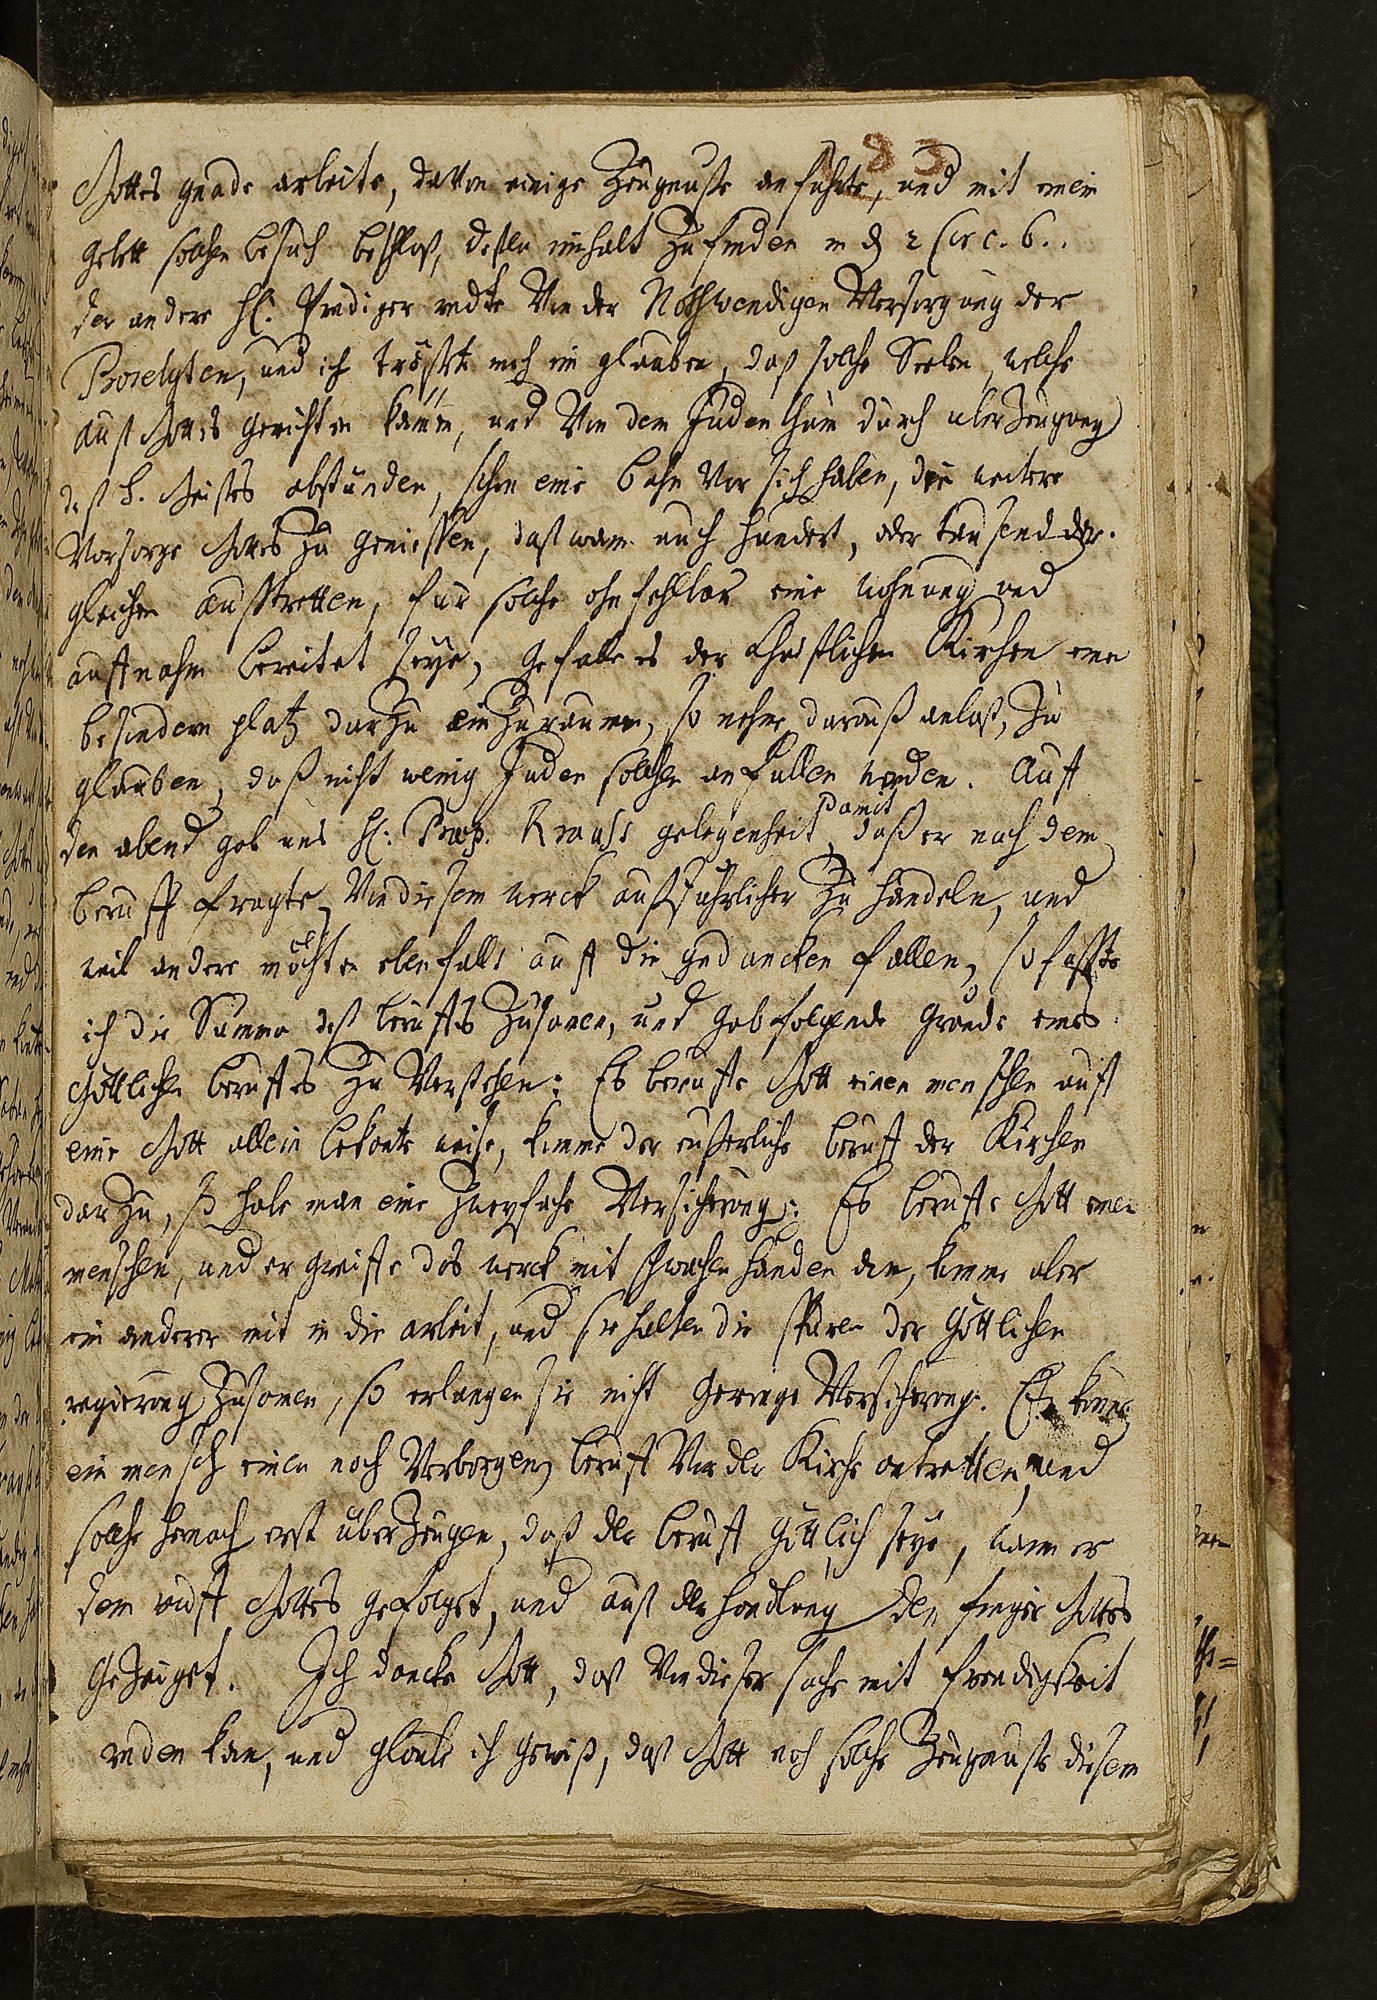 183
Gottes gnade arbeite, davon einige Zeugnuße anführte, und mit einem
gebett solchen besuch beschloß, deßen innhalt zu finden in
der andere H. Prediger redte Von der Nothwendigen Versorgung der
Proselyten, und ich tröstete mich im glauben, daß solche Seelen, welche
auß Gottes gerichten kämen, und Von dem Judenthum durch überzeugung
deß h. Geistes abstünden, schon eine bahn Vor sich haben, die weitere
Vorsorge Gottes zu geniessen, daß wann auch hundert, oder tausend der-
gleichen außtretten, für solche ohnfehlbar eine wohnung und
auffnahm bereitet seye, gefalle es der Christlichen Kirchen einen
besondern platz darzu einzuraumen, so nehme darauß anlaß, zu
glauben, daß nicht wenig Juden solchen anfüllen werden. Auff
den abend gab uns H: Prof. Krauss gelegenheit, damit daß er nach dem
beruff fragte, Von diesem werck außführlicher zu handeln, und
weil andere möchten ebenfalls auff die gedancken fallen, so faßte
ich die Summa deß beruffs zusamen, und gab folgende gründe eines
Göttlichen beruffes zu Verstehen: Es beruffe Gott einen menschen auff
eine Gott allein bekante weise, komme der eußerliche beruff der Kirchen
darzu, so habe man eine zweyfache Versicherung: Es beruffe Gott einen
menschen, und er greiffe das werck mit schwachen händen an, komme aber
ein anderer mit in die arbeit, und sie halten die spuren der Göttlichen
regierung zusamen, so erlangen sie nicht geringe Versicherung. Es könne
ein mensch einen noch Verborgenen beruff Vor der Kirche antretten, und
solche hernach erst überzeugen, daß der beruff Göttlich seye, wann er
dem ruff Gottes gefolget, und auß der handlung den finger Gottes
gezeiget. Ich dancke Gott, daß Von dieser sache mit freudigkeit
reden kan, und glaube ich gewiß, daß Gott noch solche Zeugnuße diesem